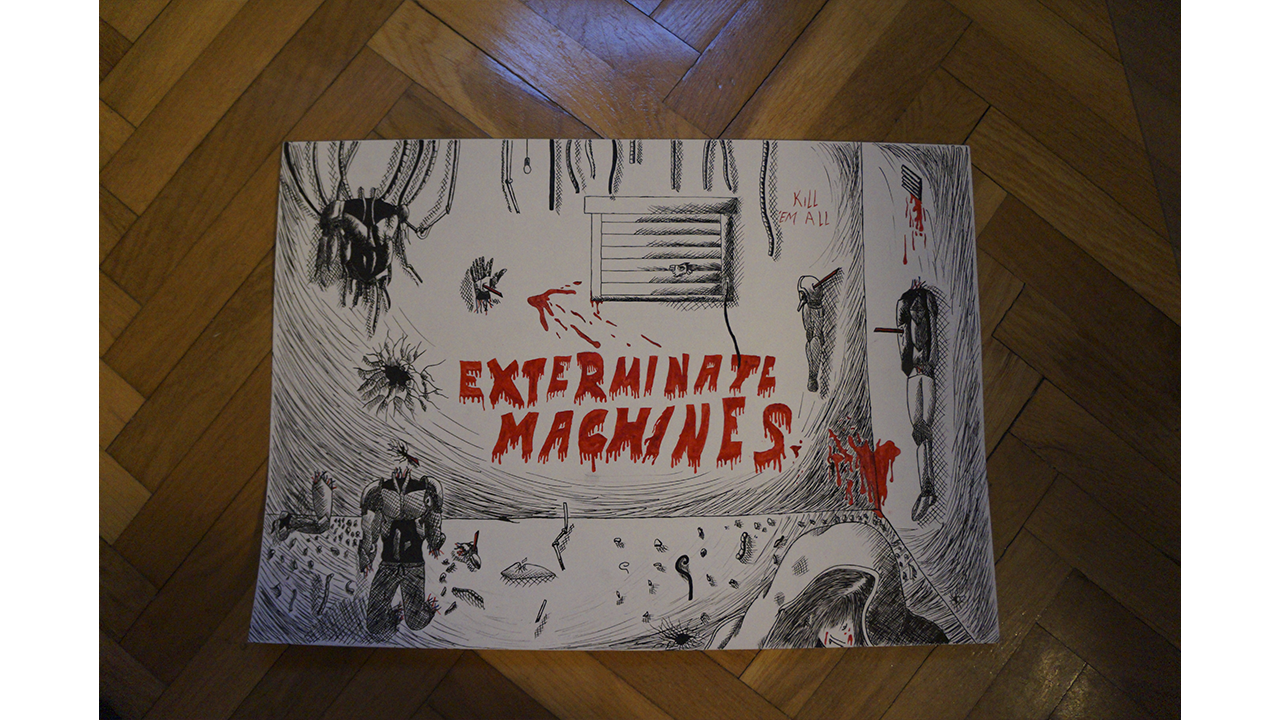 KILL
'EM ALL
EXTERMINATE
MACHINES.